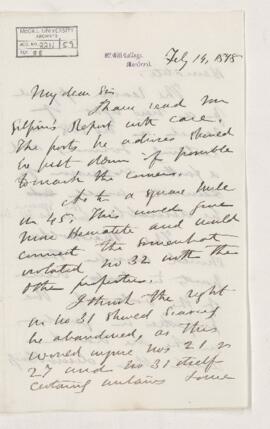 McGILL UNIVERSITY
ARCHIVES
ACC. NO. 2211/59
REF. 88
McGill College,
Montreal.
Feby 14, 1878
My dear Sir
I have read Mr
Gilpin's Report with care.
The posts he advises should
be put down if possible
to mark the corners.
As to a square mile
in 45, this would give
more Hematite and would
connect the somewhat
isolated no 32 with the
other properties.
I think the right
in no 31 should scarcely
be abandoned, as this
would injure nos 21 &
27 and no 31 itself
certainly contains some